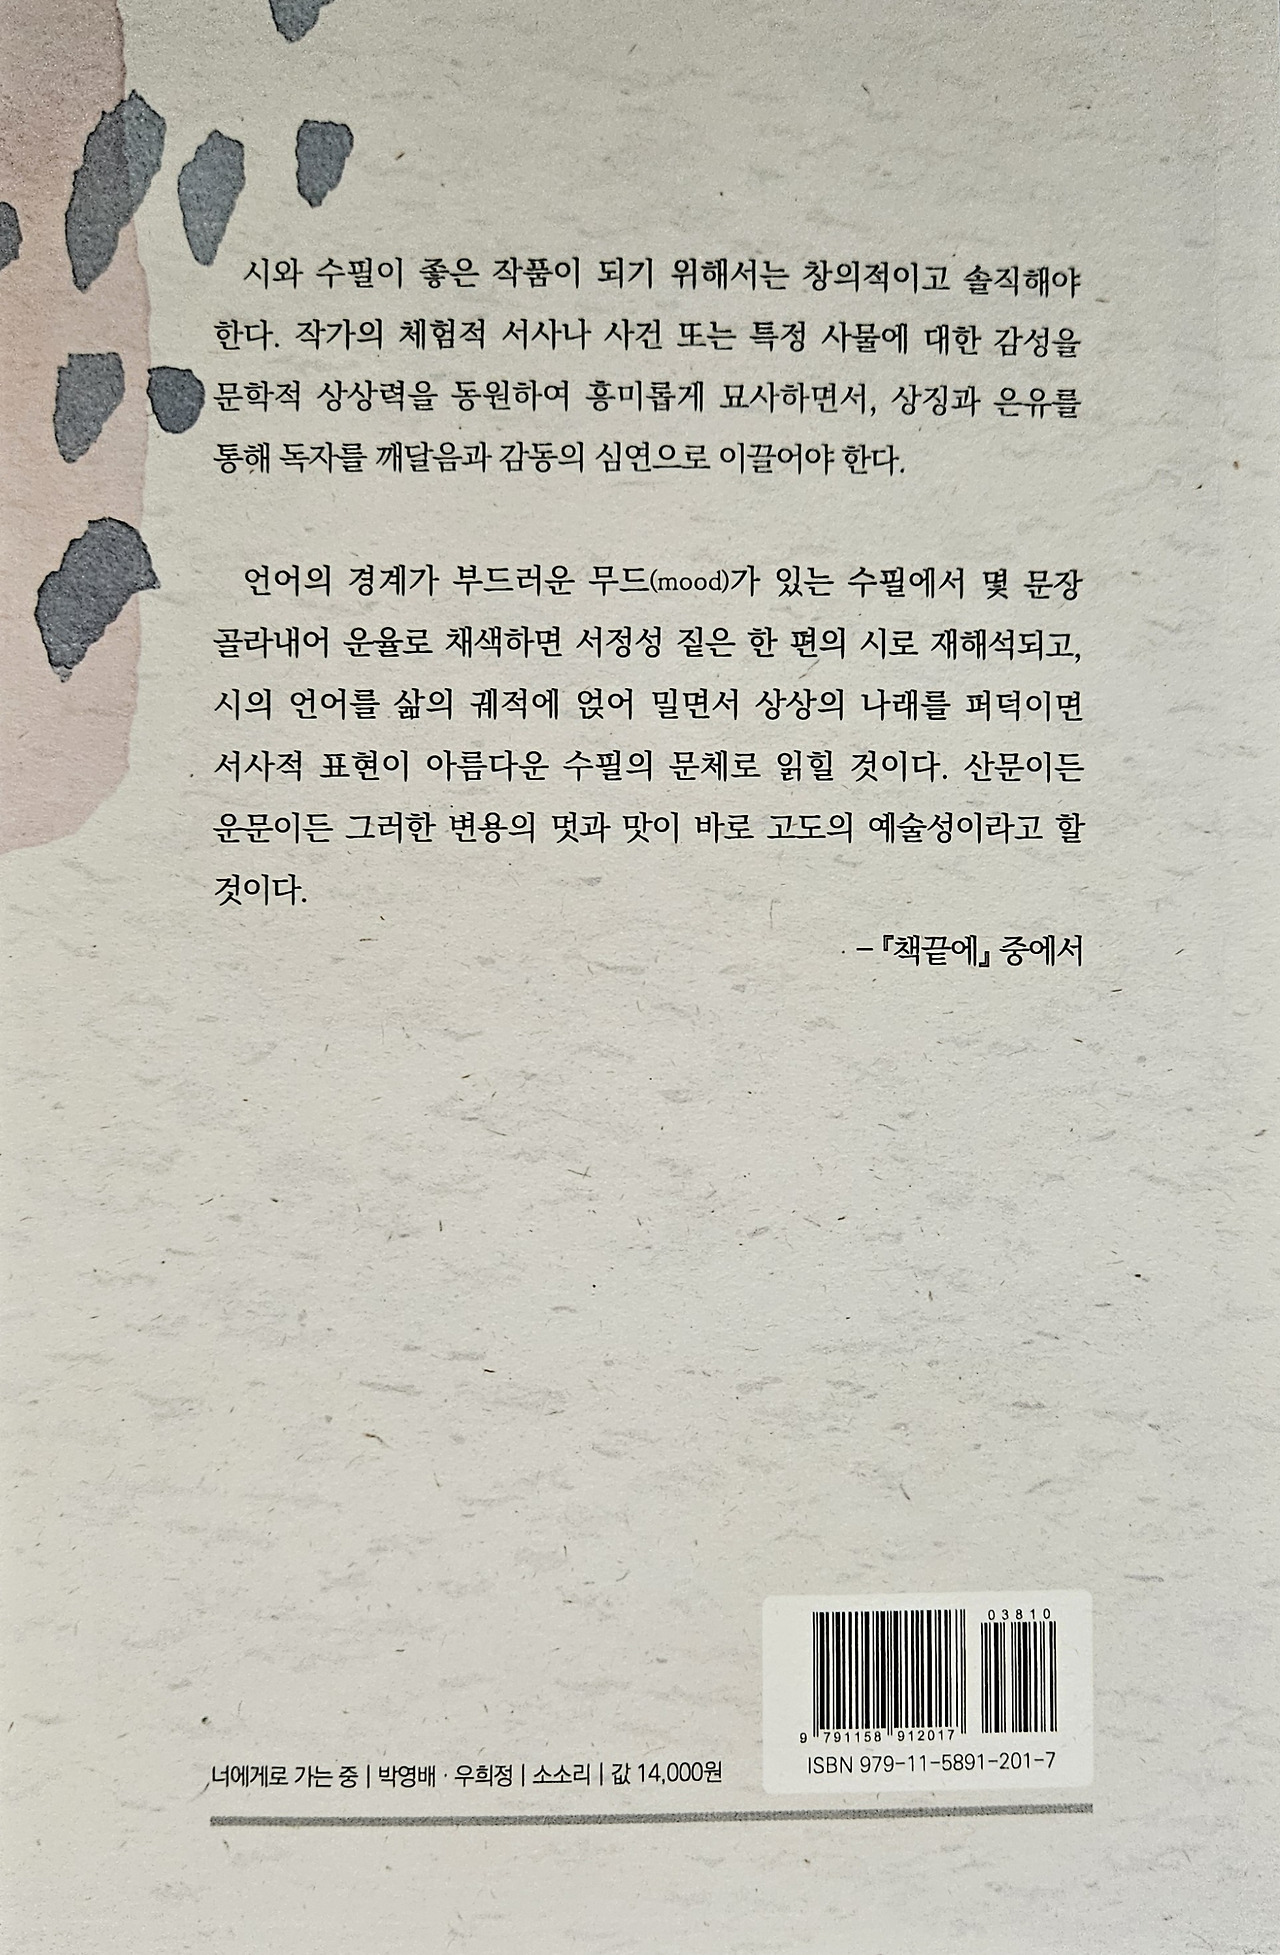 시와 수필이 좋은 작품이 되기 위해서는 창의적이고 솔직해야
한다. 작가의 체험적 서사나 사건 또는 특정 사물에 대한 감성을
문학적 상상력을 동원하여 흥미롭게 묘사하면서, 상징과 은유를
통해 독자를 깨달음과 감동의 심연으로 이끌어야 한다.
언어의 경계가 부드러운 무드(mood)가 있는 수필에서 몇 문장
골라내어 운율로 채색하면 서정성 짙은 한 편의 시로 재해석되고,
시의 언어를 삶의 궤적에 얹어 밀면서 상상의 나래를 퍼덕이면
서사적 표현이 아름다운 수필의 문체로 읽힐 것이다. 산문이든
운문이든 그러한 변용의 멋과 맛이 바로 고도의 예술성이라고 할
것이다.
–『책끝에』 중에서
03810
9 791158 912017
ISBN 979-11-5891-201-7
너에게로 가는 중 | 박영배 · 우희정 | 소소리 | 값 14,000원